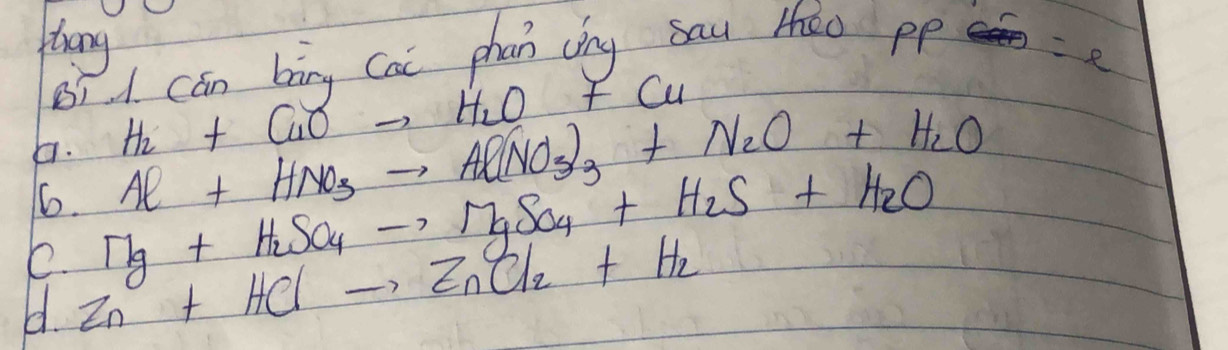 thọng
Bì 1. Cân bằng các phản ứng sau theo pp = e
a. H₂ + CuO → H₂O + Cu
b. Al + HNO₃ → Al(NO₃)₃ + N₂O + H₂O
c. Mg + H₂SO₄ → MgSO₄ + H₂S + H₂O
d. Zn + HCl → ZnCl₂ + H₂